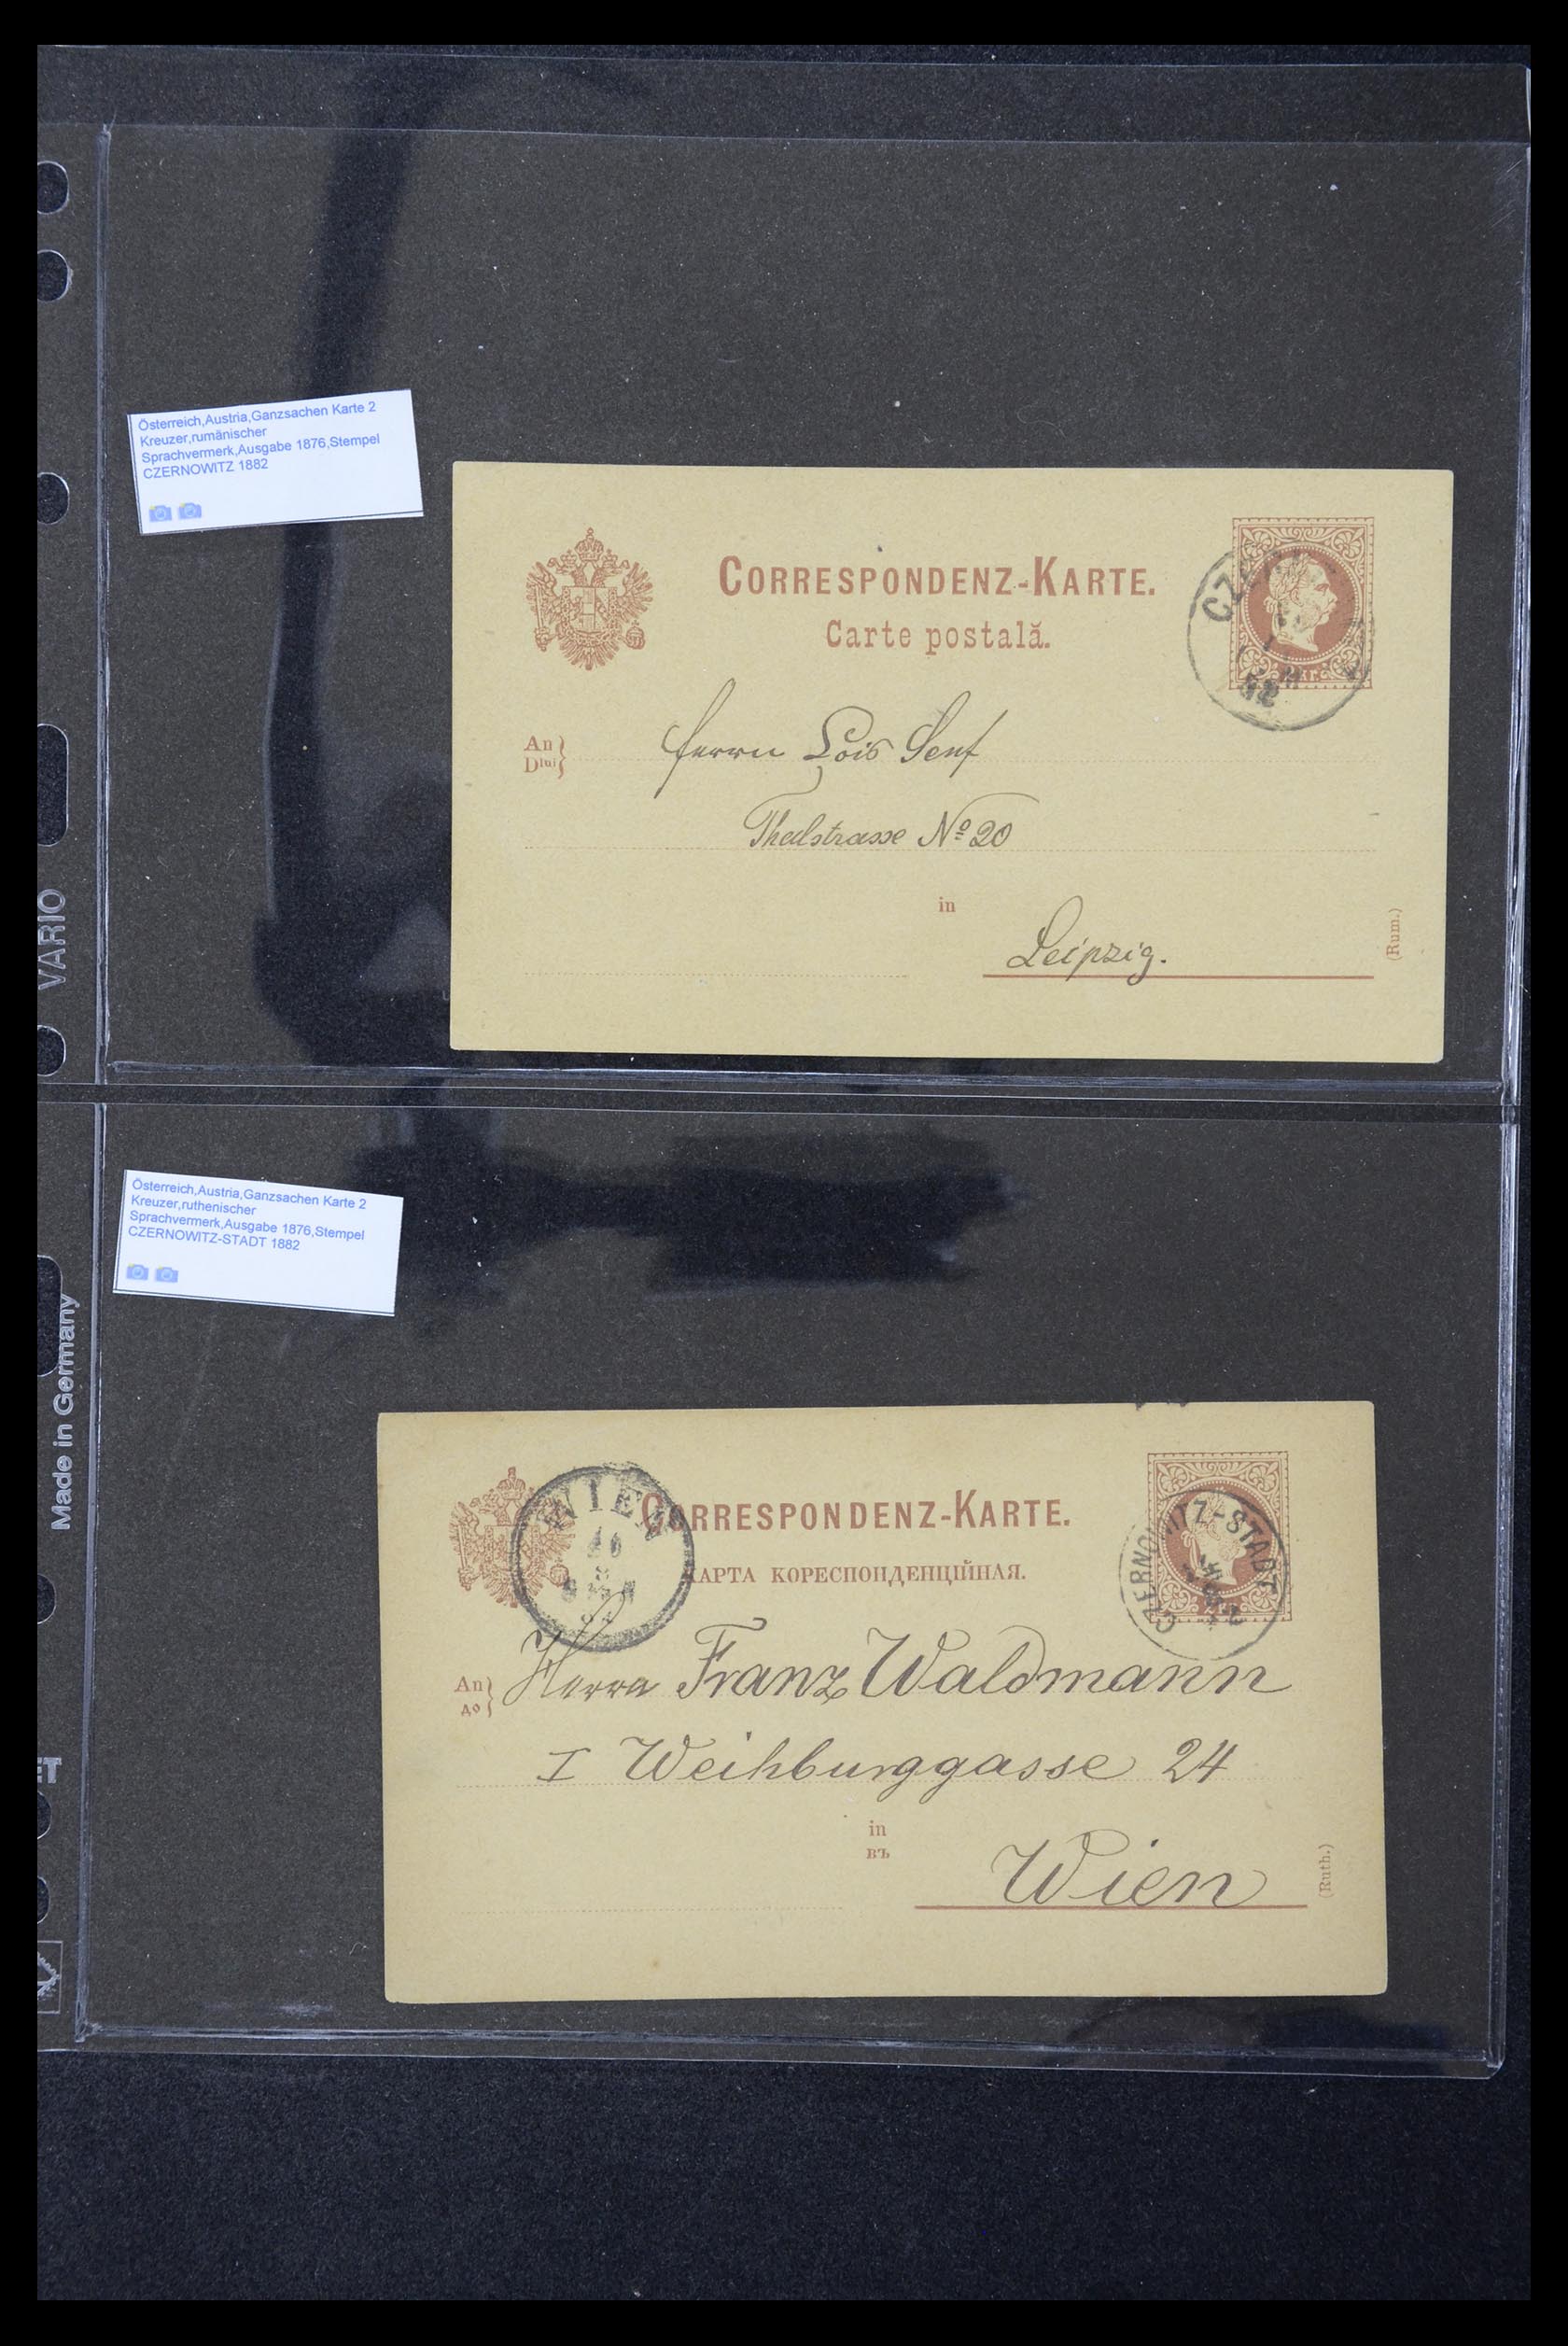 Österreich,Austria,Ganzsachen Karte 2
Kreuzer,rumänischer
Sprachvermerk,Ausgabe 1876,Stempel
CZERNOWITZ 1882
CORRESPONDENZ-KARTE.
Carte postală.
2 kr.
An
Dlui
Herrn Lois Senf
Thalstrasse No 20
in
Leipzig.
(Rum.)
VARIO
Österreich,Austria,Ganzsachen Karte 2
Kreuzer,ruthenischer
Sprachvermerk,Ausgabe 1876,Stempel
CZERNOWITZ-STADT 1882
Made in Germany
WIEN
CORRESPONDENZ-KARTE.
КАРТА КОРЕСПОНДЕНЦІЙНАЯ.
CZERNOWITZ-STADT
An
до
Herrn Franz Waldmann
I Weihburggasse 24
in
въ
Wien
(Ruth.)